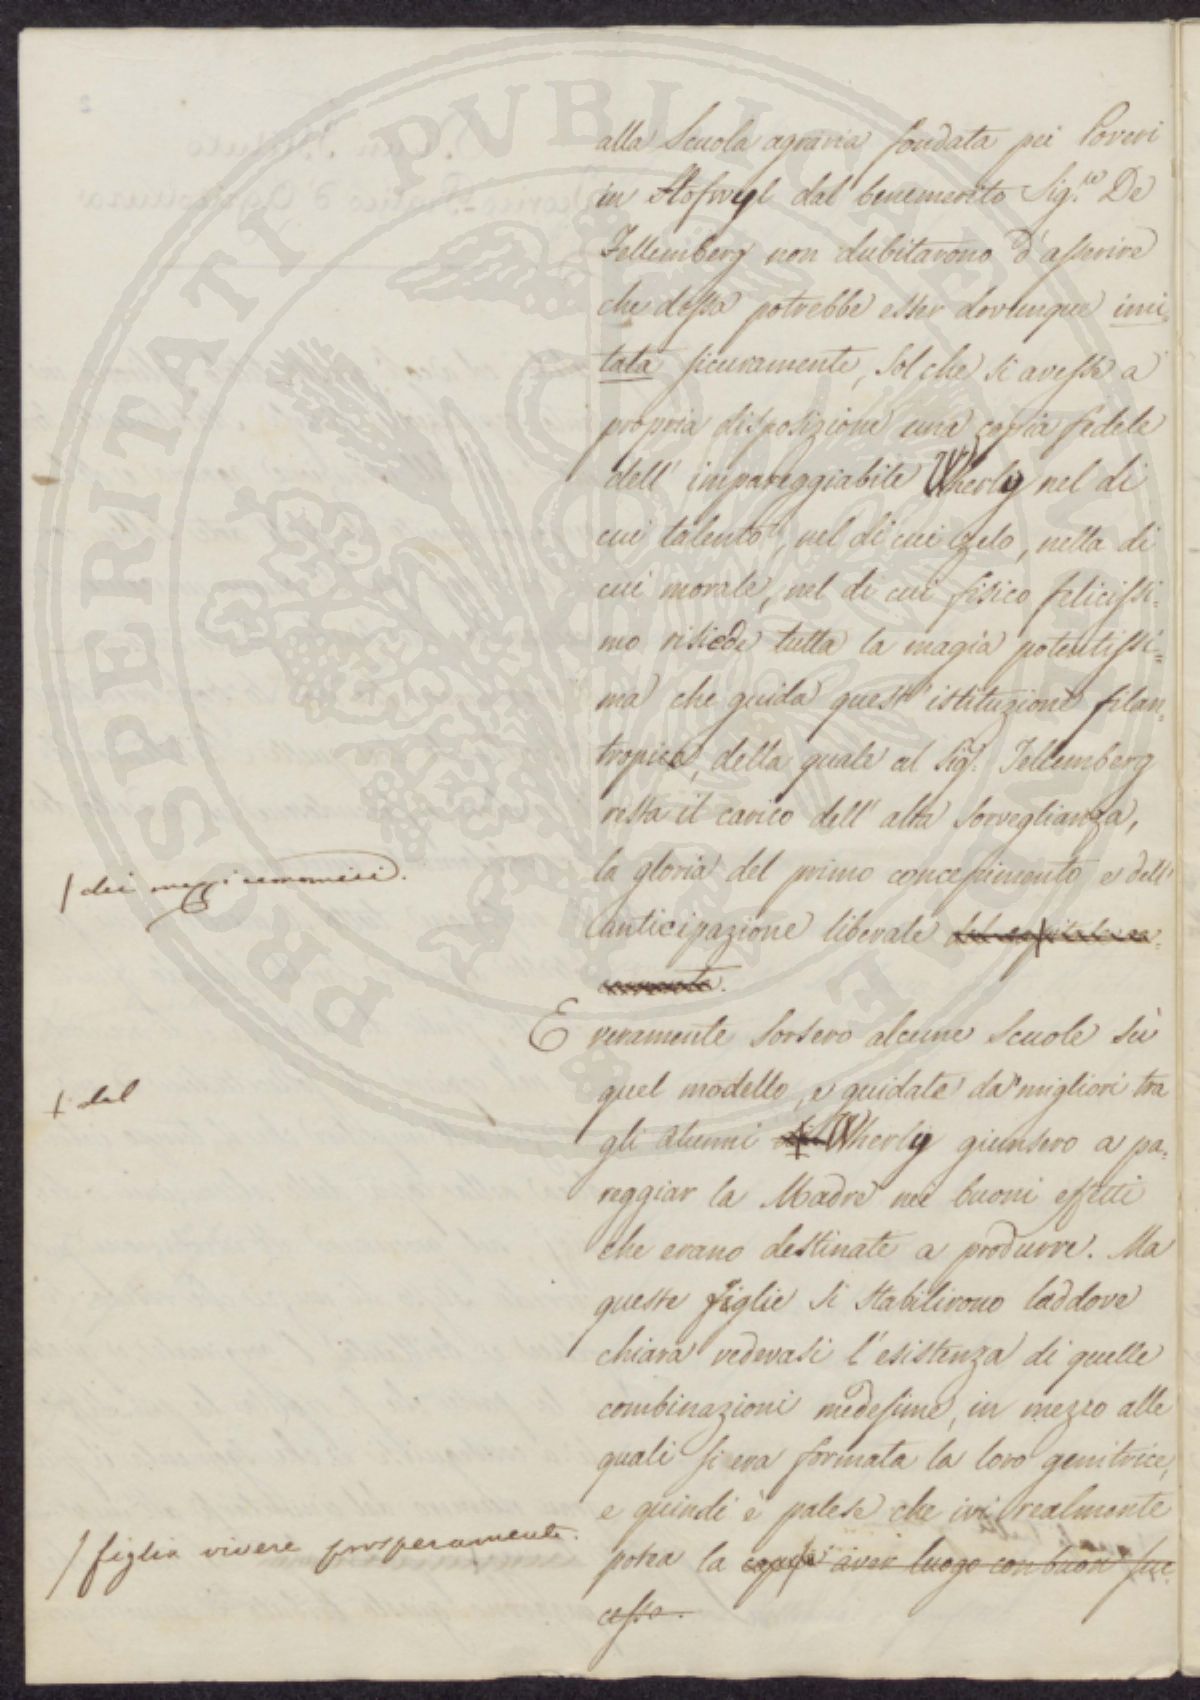 alla Scuola agraria fondata pei Poveri
in Hofwyl dal benemerito Sig.re De
Fellemberg non dubitarono d'asserire
che dessa potrebbe esser dovunque imi-
tata sicuramente, sol che si avesse a
propria disposizione una copia fedele
dell' impareggiabile Wherly nel di
cui talento, nel di cui zelo, nella di
cui morale, nel di cui fisico felicissi-
mo risiede tutta la magia potentissi=
ma che guida quest' istituzione filan-
tropica, della quale al Sig.r Fellemberg
resta il carico dell' alta sorveglianza,
la gloria del primo concepimento e dell'
anticipazione liberale del capitale
/ dei mezzi economici.
E veramente sorsero alcune scuole sù
quel modello, e guidate da' migliori tra
gli alunni Wherly giunsero a pa=
+ del
reggiar la Madre nei buoni effetti
che erano destinate a produrre. Ma
queste figlie si stabilirono laddove
chiara vedevasi l'esistenza di quelle
combinazioni medesime, in mezzo alle
quali si era formata la loro genitrice,
e quindi è palese che ivi realmente
potea la copia aver luogo con buon suc-
cesso.
/ figlia vivere prosperamente.
PROSPERITATI PVBLICAE